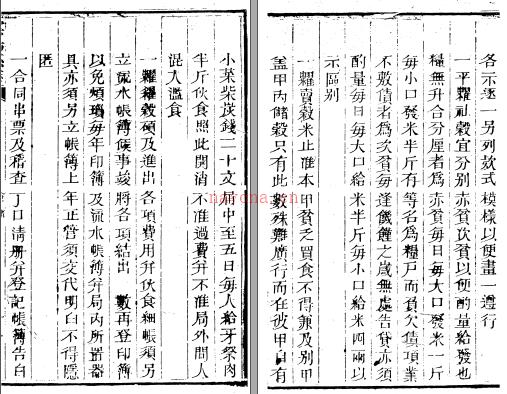 各示逐一另列款式模樣以便畫一遵行
一平糶社穀宜分別赤貧次貧以便酌量給發也
糧無升合分厘者為赤貧每日大口發米一斤
每小口發米半斤有等名為糧戶而負欠債項業
不敷債者為次貧每逢饑饉之歲無處告貸亦須
酌量每日每大口給米半斤每小口給米四兩以
示區別
一糶賣穀米止准本甲貧乏買食不得兼及別甲
蓋甲內儲穀只有此數殊難廣行而在彼甲自有
小菜柴炭錢二十文局中至五日每人給牙祭肉
半斤伙食照此開消不准過費并不准局外閒人
混入濫食
一糶糴穀碩及進出各項費用并伙食細帳須另
立流水帳簿候事竣將各項結出數再登印簿
以免煩瑣每年印簿及流水帳簿并局內所置器
具亦須另立帳簿上年正管須交代明白不得隱
匿
一合同串票及稽查丁口清册并登記帳簿告白
nayona.cn